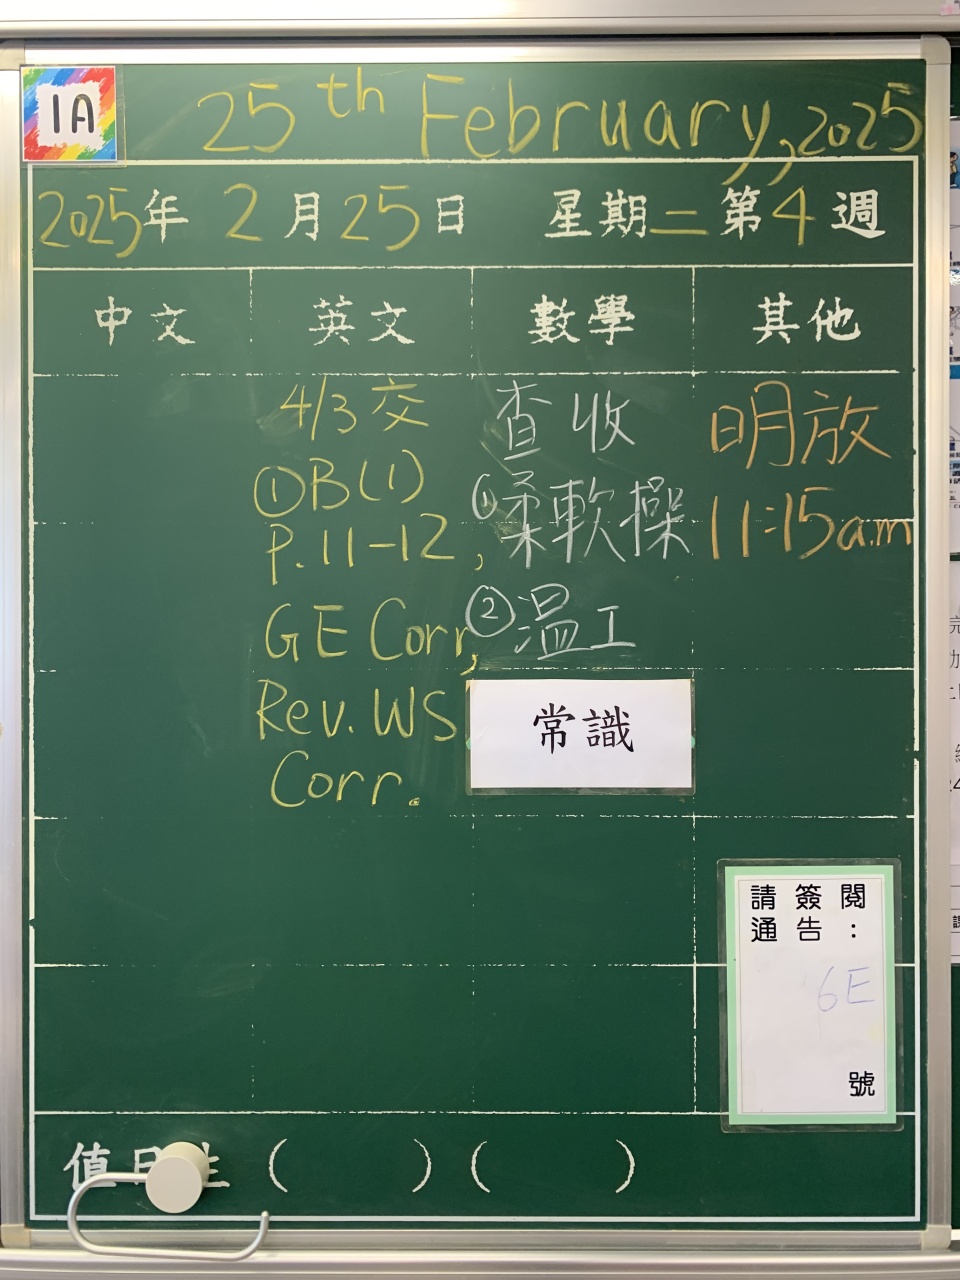 1A
25th February, 2025
2025年 2月25日 星期二 第4週
中文 英文 數學 其他
4/3 交
①B(1)
P.11-12,
GE Corr,
Rev. WS
Corr.
查收
①柔軟操
②温工
常識
明放
11:15a.m
請簽閱
通告:
6E
號
值日生 ( ) ( )